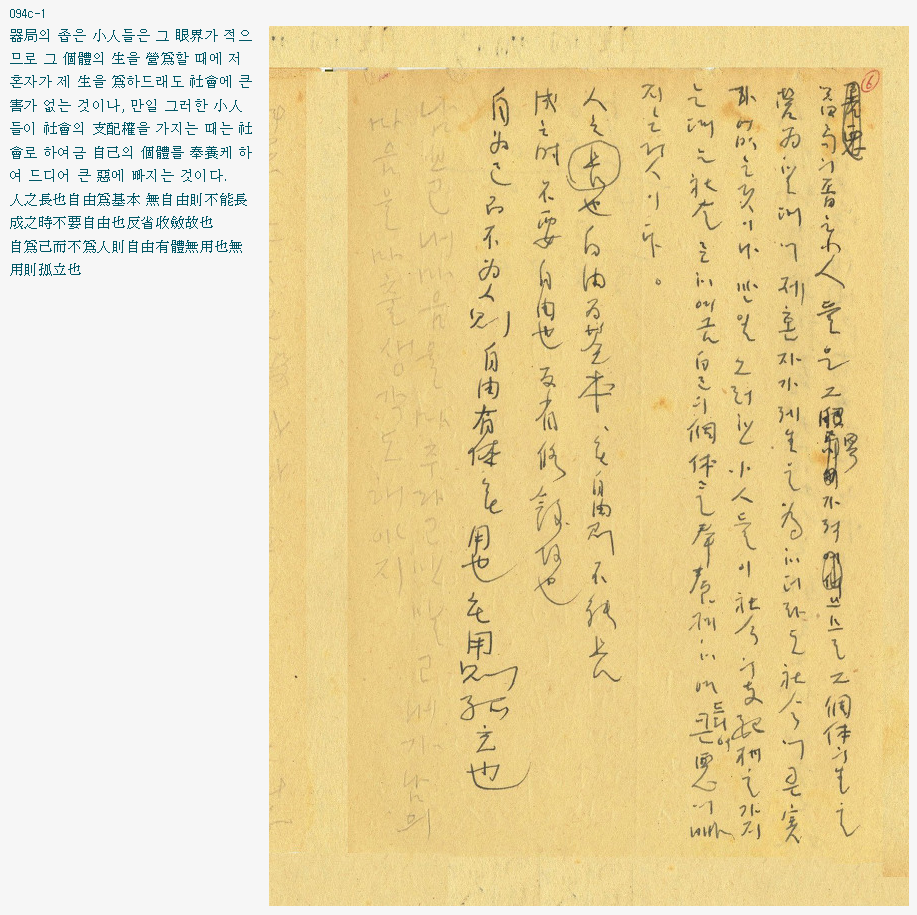 094c-1
器局의 좁은 小人들은 그 眼界가 적으
므로 그 個體의 生을 營爲할 때에 저
혼자가 제 生을 爲하드래도 社會에 큰
害가 없는 것이나, 만일 그러한 小人
들이 社會의 支配權을 가지는 때는 社
會로 하여금 自己의 個體를 奉養케 하
여 드디어 큰 惡에 빠지는 것이다.
人之長也自由爲基本 無自由則不能長
成之時不要自由也反省收斂故也
自爲己而不爲人則自由有體無用也無
用則孤立也
⑥
들은 그 眼界
가 적 으므로 그 個体의 生을
營爲할 때에 제 혼자가 제 生을 爲하더라도 社会에 큰 害
가 없는 것이나 만일 그러한 小人들이 社会의 支配権을 가지
는 때는 社会로 하여금 自己의 個体를 奉養케 하여 드디어 큰 惡에 빠
지는 것이다。
人之長也 自由为基本、无自由則不能長
成之時 不要自由也 反省 故也
自为己而不为人則 自由有体无用也 无用則孤立也